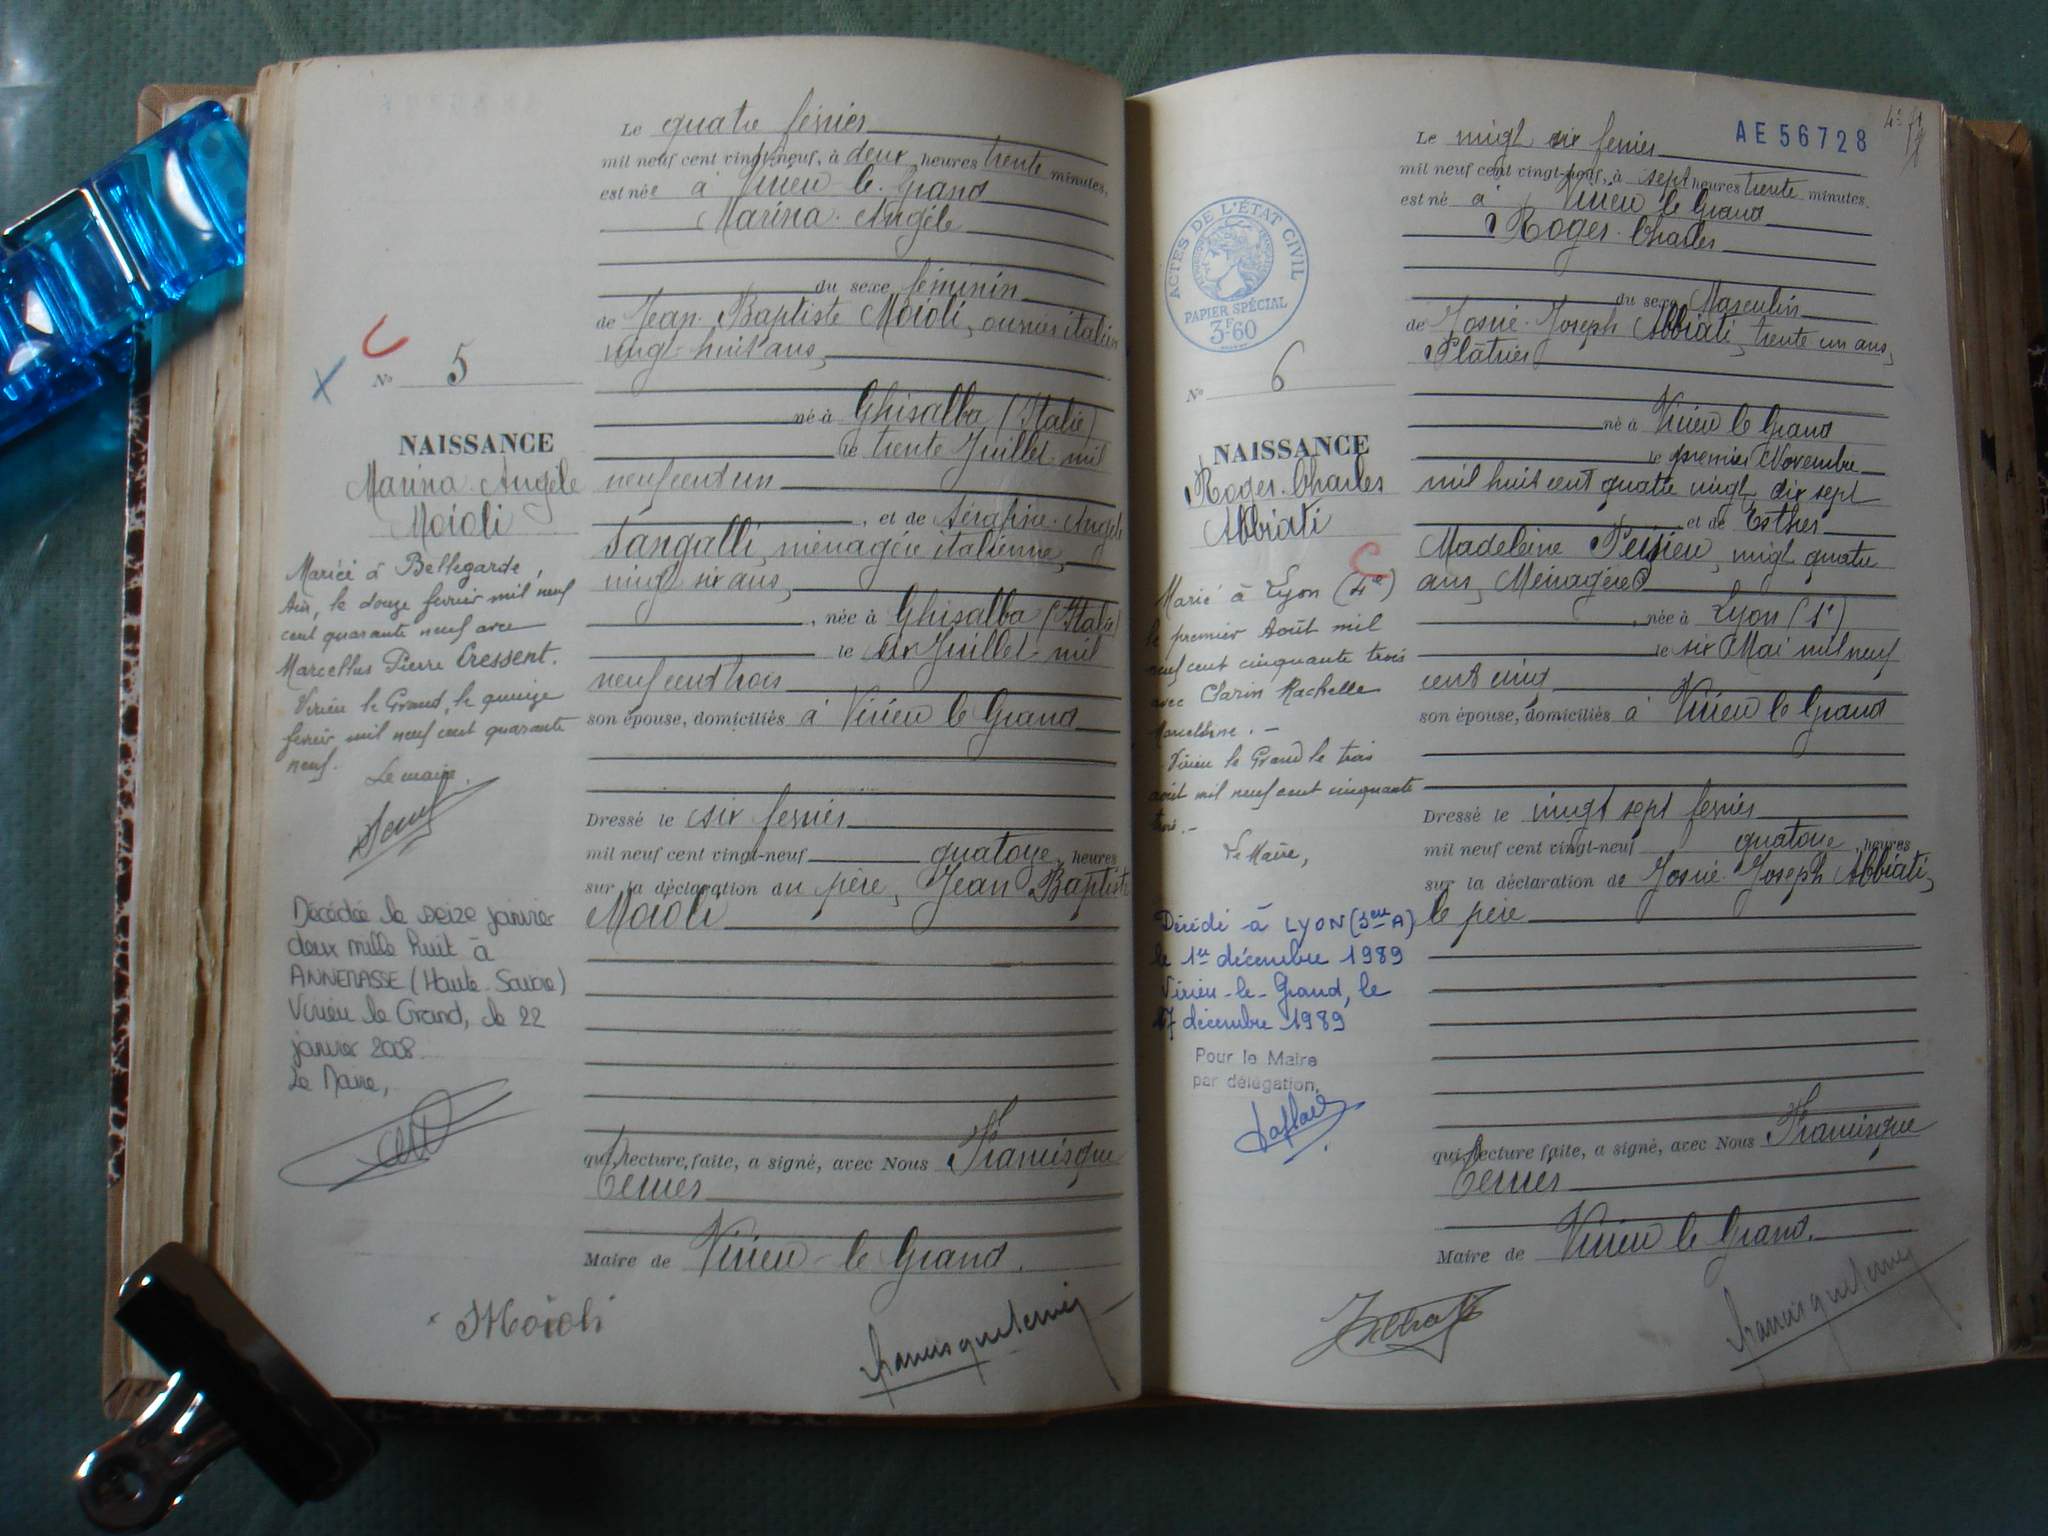 Le quatre février
mil neuf cent vingt-neuf, à deux heures trente minutes,
est née à Virieu le Grand
Marina Angèle
du sexe féminin
de Jean Baptiste Moioli, ouvrier italien
vingt-huit ans,
né à Ghisalba (Italie)
le trente Juillet mil
neuf cent un
, et de Sérafine Angèle
Sangalli, ménagère italienne,
vingt six ans,
, née à Ghisalba (Italie)
le six Juillet mil
neuf cent trois
son épouse, domiciliés à Virieu le Grand
Dressé le six février
mil neuf cent vingt-neuf quatorze heures
sur la déclaration du père, Jean Baptiste
Moioli
qui, lecture faite, a signé, avec Nous Francisque
Ternes
Maire de Virieu-le Grand.
JMoioli
francisque
No 5
NAISSANCE
Marina Angèle
Moioli
Mariée à Bellegarde,
Ain, le douze février mil neuf
cent quarante neuf avec
Marcellus Pierre Cressent.
Virieu le Grand, le quinze
février mil neuf cent quarante
neuf.
Le maire.
Décédée le seize janvier
deux mille huit à
ANNEMASSE (Haute-Savoie)
Virieu le Grand, le 22
janvier 2008.
Le Maire,
AE 56728
Le vingt six février
mil neuf cent vingt-neuf, à sept heures trente minutes.
est né à Virieu le Grand
Roger Charles
du sexe Masculin
de Josué Joseph Abbiati, trente un ans,
Plâtrier
né à Virieu le Grand
le premier Novembre
mil huit cent quatre vingt dix sept
et de Esther
Madeleine Perrieu, vingt quatre
ans, Ménagère
, née à Lyon
le six Mai mil neuf
cent cinq
son épouse, domiciliés à Virieu le Grand
Dressé le vingt sept février
mil neuf cent vingt-neuf quatorze heures
sur la déclaration de Josué Joseph Abbiati,
le père
qui, lecture faite, a signé, avec Nous Francisque
Ternes
Maire de Virieu le Grand.
francisque
ACTES DE L'ÉTAT CIVIL
PAPIER SPÉCIAL
3F60
No 6
NAISSANCE
Roger Charles
Abbiati
Marié à Lyon (4e)
le premier Août mil
neuf cent cinquante trois
avec Clarin Rachelle
Marcelline. -
Virieu le Grand le trois
août mil neuf cent cinquante
trois. -
Le Maire,
Décédé à LYON (3eme A)
le 1er décembre 1989
Virieu-le-Grand, le
17 décembre 1989
Pour le Maire
par délégation,